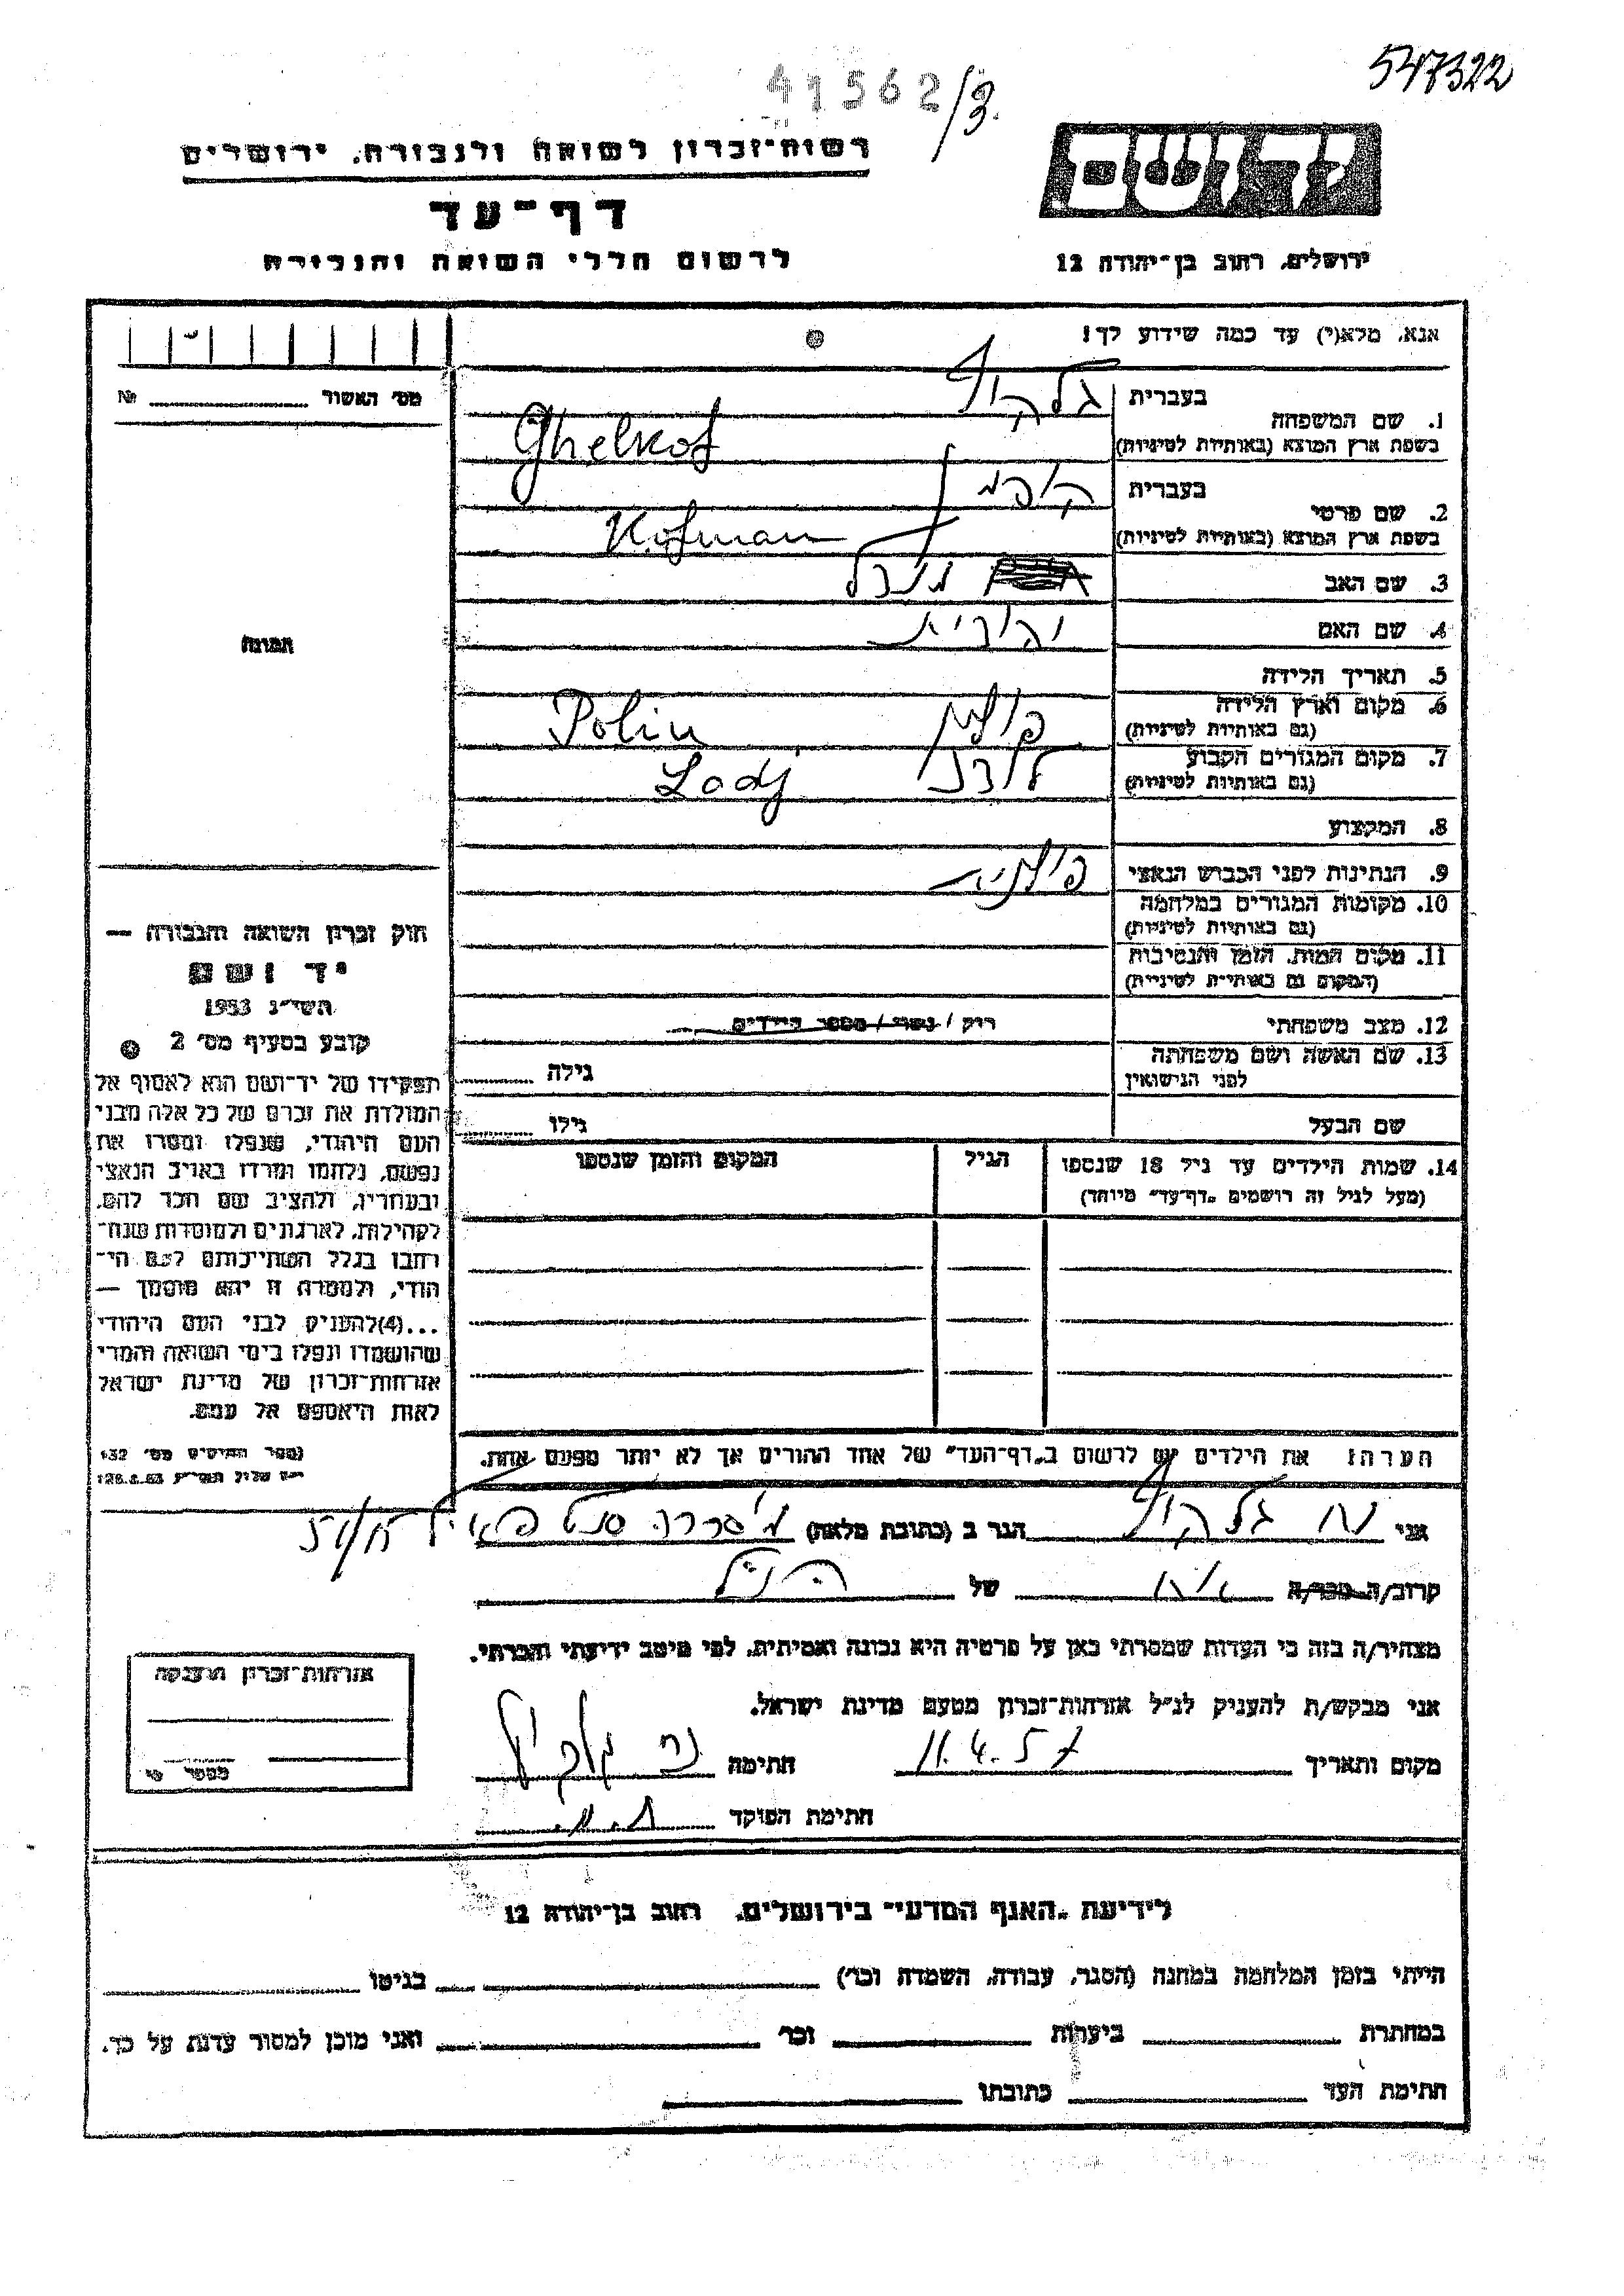 547322
41562/3.
רשות־זכרון לשואה ולגבורה, ירושלים
דף־עד
לרשום חללי השואה והגבורה
יד ושם
ירושלים, רחוב בן־יהודה 12
אנא, מלא(י) עד כמה שידוע לך!
מס׳ האשור № 
1. שם המשפחה
בעברית גלקוף
בשפת ארץ המוצא (באותיות לטיניות) Ghelkof
2. שם פרטי
בעברית קופמן
בשפת ארץ המוצא (באותיות לטיניות) Kofman
3. שם האב
4. שם האם יהודית
5. תאריך הלידה
6. מקום וארץ הלידה פולין Polin
(גם באותיות לטיניות)
7. מקום המגורים הקבוע לודז Lodj
(גם באותיות לטיניות)
8. המקצוע
9. הנתינות לפני הכבוש הנאצי פולנית
10. מקומות המגורים במלחמה
(גם באותיות לטיניות)
11. מקום המות, הזמן והנסיבות
(המקום גם באותיות לטיניות)
12. מצב משפחתי רוק / נשוי / מספר הילדים
13. שם האשה ושם משפחתה
לפני הנישואין
גילה
שם הבעל
גילו
14. שמות הילדים עד גיל 18 שנספו
(מעל לגיל זה רושמים „דף־עד״ מיוחד)
הגיל
המקום והזמן שנספו
הערה: את הילדים יש לרשום ב„דף־העד״ של אחד ההורים אך לא יותר מפעם אחת.
תמונה
חוק זכרון השואה והגבורה —
יד ושם
תשי״ג 1953
קובע בסעיף מס׳ 2
תפקידו של יד־ושם הוא לאסוף אל
המולדת את זכרם של כל אלה מבני
העם היהודי, שנפלו ומסרו את
נפשם, נלחמו ומרדו באויב הנאצי
ובעוזריו, ולהציב שם וזכר להם,
לקהילות, לארגונים ולמוסדות שנח־
רבו בגלל השתייכותם לעם הי־
הודי, ולמטרה זו יהא מוסמך —
...(4)להעניק לבני העם היהודי
שהושמדו ונפלו בימי השואה והמרי
אזרחות־זכרון של מדינת ישראל
לאות היאספם אל עמם.
אני גלקוף הגר ב (כתובת מלאה)
קרוב/ה מכר/ה אח של הנ״ל
מצהיר/ה בזה כי העדות שמסרתי כאן על פרטיה היא נכונה ואמיתית, לפי מיטב ידיעתי והכרתי.
אני מבקש/ת להעניק לנ״ל אזרחות־זכרון מטעם מדינת ישראל.
מקום ותאריך 11.4.57 חתימה
חתימת הפוקד
אזרחות־זכרון הוענקה
לידיעת „האגף המדעי״ בירושלים, רחוב בן־יהודה 12
הייתי בזמן המלחמה במחנה (הסגר, עבודה, השמדה וכו׳) בגיטו
במחתרת ביערות וכו׳ ואני מוכן למסור עדות על כך.
חתימת העד כתובתו